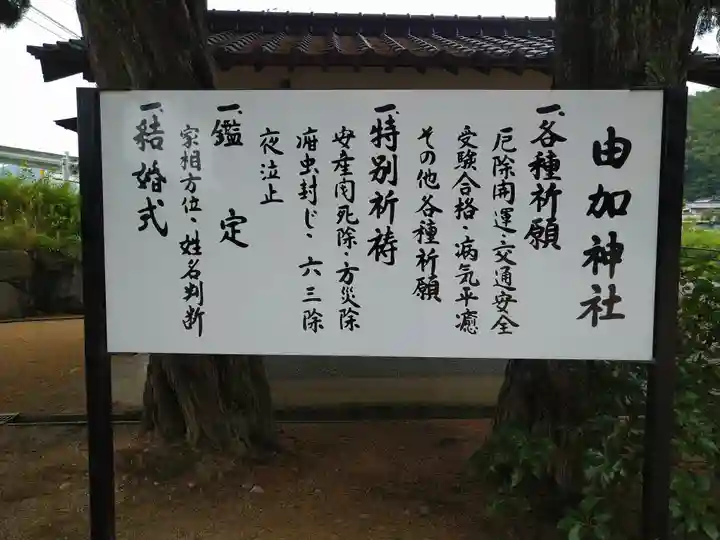 由加神社
一、各種祈願
厄除開運・交通安全
受験合格・病気平癒
その他各種祈願
一、特別祈祷
安産肉死除・方災除
疳虫封じ・六三除
夜泣止
一、鑑定
家相方位・姓名判断
一、結婚式